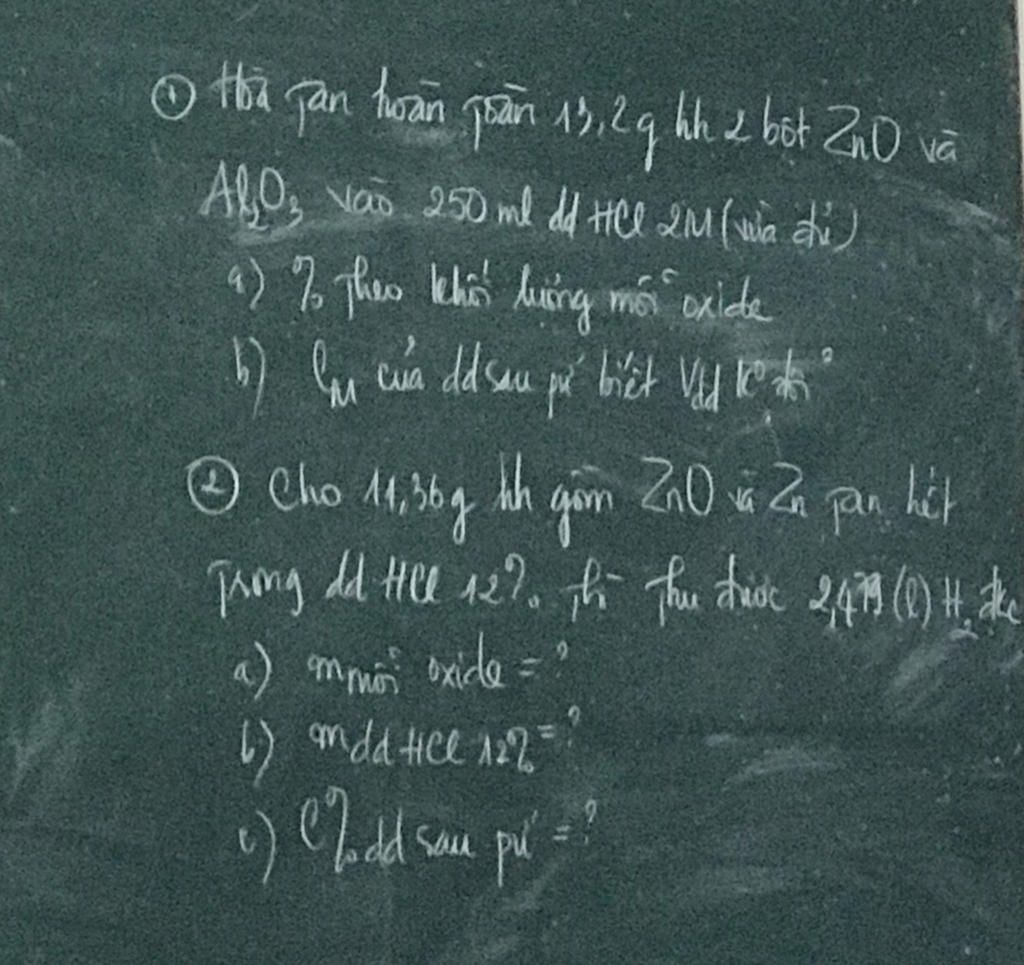 ① Hòa tan hoàn toàn 13,2g hh 2 bột ZnO và
Al₂O₃ vào 250 ml dd HCl 2M (vừa đủ)
a) % theo khối lượng mỗi oxide
b) CM của dd sau pứ biết Vdd k° đổi
② Cho 11,36g hh gồm ZnO và Zn tan hết
trong dd HCl 12% thì thu được 2,479 (l) H₂ đkc
a) m mỗi oxide = ?
b) mdd HCl 12% = ?
c) C% dd sau pứ = ?